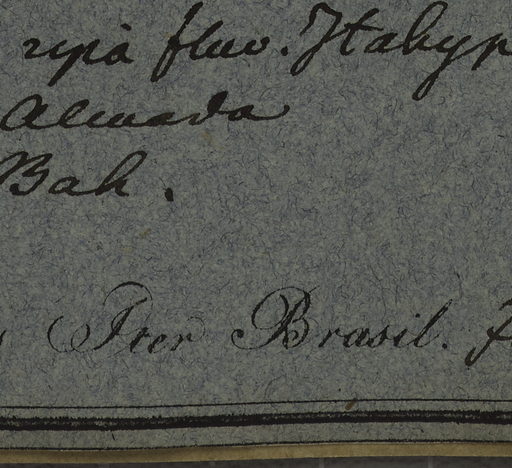 ripà fluv. Itahyp
Almada
Bah.
Iter Brasil.